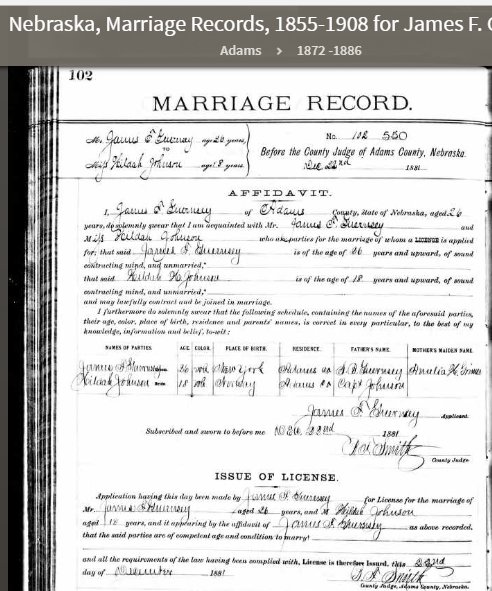 Nebraska, Marriage Records, 1855-1908 for James F.
Adams > 1872 -1886
102
MARRIAGE RECORD.
Mr. James F Guernsey aged 26 years,
TO
Miss Hildah Johnson aged 18 years,
No. 102 550
Before the County Judge of Adams County, Nebraska.
Dec 22nd 1881
AFFIDAVIT.
I, James F Guernsey of Adams County, State of Nebraska, aged 26
years, do solemnly swear that I am acquainted with Mr. James F. Guernsey and
Miss Hildah Johnson who are parties for the marriage of whom a LICENSE is applied
for; that said James F. Guernsey is of the age of 26 years and upward, of sound
contracting mind, and unmarried;
that said Hildah Johnson is of the age of 18 years and upward, of sound
contracting mind, and unmarried;
and may lawfully contract and be joined in marriage.
I furthermore do solemnly swear that the following schedule, containing the names of the aforesaid parties,
their age, color, place of birth, residence and parents' names, is correct in every particular, to the best of my
knowledge, information and belief, to-wit:
NAMES OF PARTIES. AGE. COLOR. PLACE OF BIRTH. RESIDENCE. FATHER'S NAME. MOTHER'S MAIDEN NAME.
James F Guernsey 26 New York Adams Co Guernsey Amelia
Hildah Johnson 18 Norway Adams Co Capt Johnson
James F. Guernsey Applicant.
Subscribed and sworn to before me Dec 22nd 1881
Smith
County Judge
ISSUE OF LICENSE.
Application having this day been made by James F. Guernsey for License for the marriage of
Mr. James F Guernsey aged 26 years, and M Hildah Johnson
aged 18 years, and it appearing by the affidavit of James F. Guernsey as above recorded,
that the said parties are of competent age and condition to marry;
and all the requirements of the law having been complied with, License is therefore issued, this 22nd
day of December 1881
Smith
County Judge, Adams County, Nebraska.